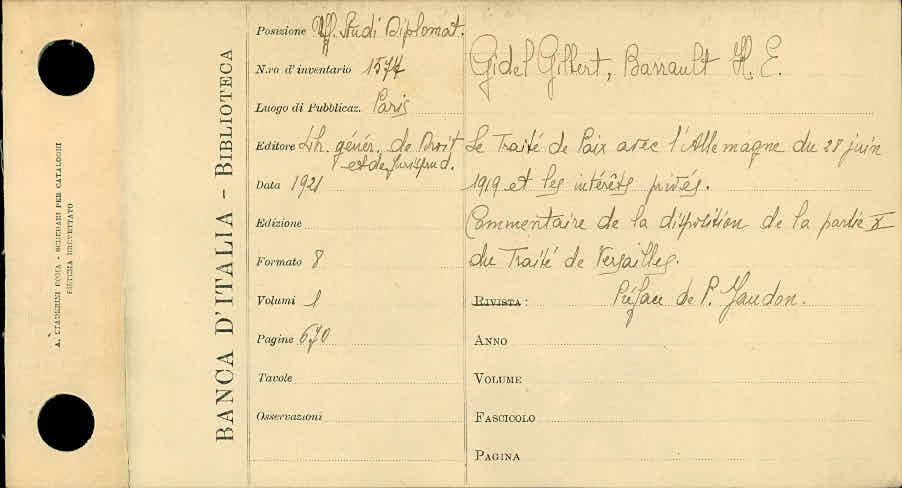 A. STADERINI ROMA - SCHEDARI PER CATALOGHI
SISTEMA BREVETTATO
BANCA D'ITALIA - BIBLIOTECA
Posizione Uff. Studi Diplomat.
N.ro d'inventario 1574
Luogo di Pubblicaz. Paris
Editore Lib. génér. de Droit
et de Jurisprud.
Data 1921
Edizione
Formato 8
Volumi 1
Pagine 670
Tavole
Osservazioni
Gidel Gilbert, Barrault H. E.
Le Traité de Paix avec l'Allemagne du 28 juin
1919 et les intérêts privés.
Commentaire de la disposition de la partie X
du Traité de Versailles.
RIVISTA : Préface de P. Jaudon.
ANNO
VOLUME
FASCICOLO
PAGINA